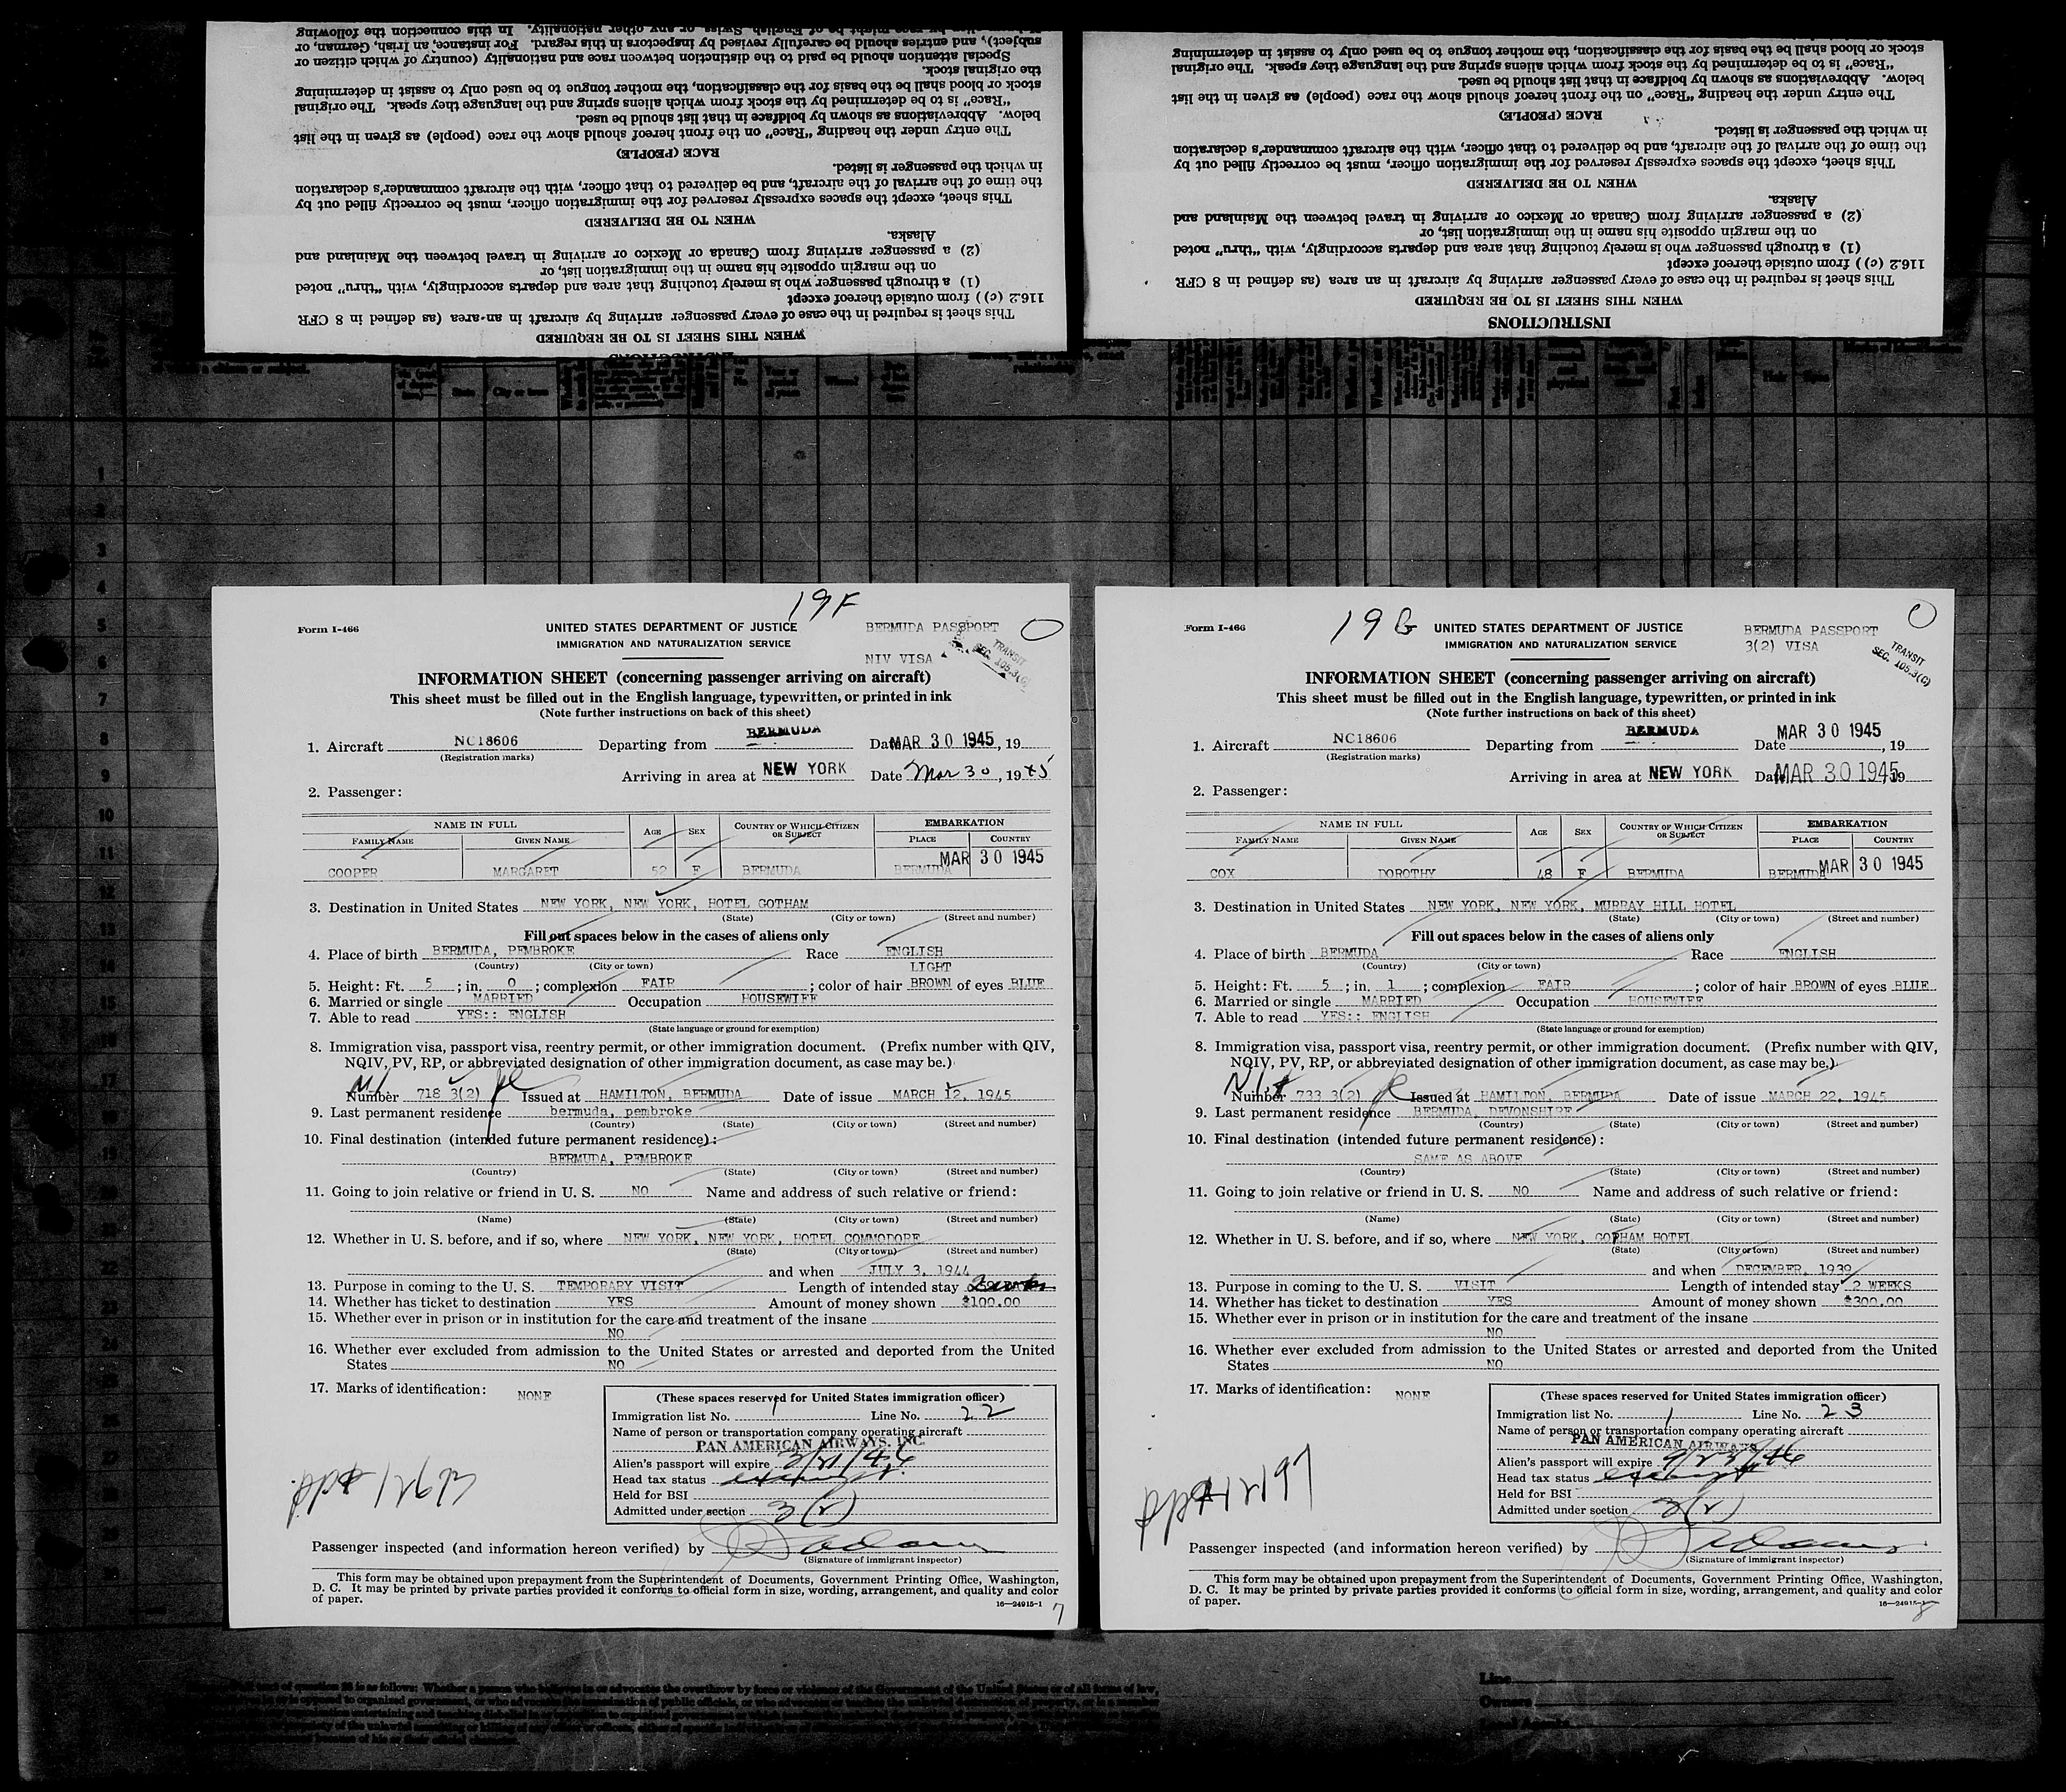 of English, Swiss, or any other nationality. In this connection the following
subject), and entries should be carefully revised by inspectors in this regard. For instance, an Irish, German, or
Special attention should be paid to the distinction between race and nationality (country of which citizen or
the original stock.
stock or blood shall be the basis for the classification, the mother tongue to be used only to assist in determining
"Race" is to be determined by the stock from which aliens spring and the language they speak. The original
below. Abbreviations as shown by boldface in that list should be used.
The entry under the heading "Race" on the front hereof should show the race (people) as given in the list
RACE (PEOPLE)
in which the passenger is listed.
the time of the arrival of the aircraft, and be delivered to that officer, with the aircraft commander's declaration
This sheet, except the spaces expressly reserved for the immigration officer, must be correctly filled out by
WHEN TO BE DELIVERED
Alaska.
(2) a passenger arriving from Canada or Mexico or arriving in travel between the Mainland and
on the margin opposite his name in the immigration list, or
(1) a through passenger who is merely touching that area and departs accordingly, with "thru" noted
116.2 (c)) from outside thereof except
This sheet is required in the case of every passenger arriving by aircraft in an area (as defined in 8 CFR
WHEN THIS SHEET IS TO BE REQUIRED
INSTRUCTIONS
stock or blood shall be the basis for the classification, the mother tongue to be used only to assist in determining
"Race" is to be determined by the stock from which aliens spring and the language they speak. The original
below. Abbreviations as shown by boldface in that list should be used.
The entry under the heading "Race" on the front hereof should show the race (people) as given in the list
RACE (PEOPLE)
in which the passenger is listed.
the time of the arrival of the aircraft, and be delivered to that officer, with the aircraft commander's declaration
This sheet, except the spaces expressly reserved for the immigration officer, must be correctly filled out by
WHEN TO BE DELIVERED
Alaska.
(2) a passenger arriving from Canada or Mexico or arriving in travel between the Mainland and
on the margin opposite his name in the immigration list, or
(1) a through passenger who is merely touching that area and departs accordingly, with "thru" noted
116.2 (c)) from outside thereof except
This sheet is required in the case of every passenger arriving by aircraft in an area (as defined in 8 CFR
WHEN THIS SHEET IS TO BE REQUIRED
INSTRUCTIONS
19F
Form I-466
UNITED STATES DEPARTMENT OF JUSTICE
IMMIGRATION AND NATURALIZATION SERVICE
BERMUDA PASSPORT
NIV VISA
TRANSIT
SEC. 105.3(G)
INFORMATION SHEET (concerning passenger arriving on aircraft)
This sheet must be filled out in the English language, typewritten, or printed in ink
(Note further instructions on back of this sheet)
1. Aircraft NC18606 Departing from BERMUDA Date MAR 30 1945, 19
(Registration marks)
Arriving in area at NEW YORK Date Mar 30, 1945
2. Passenger:
NAME IN FULL AGE SEX COUNTRY OF WHICH CITIZEN OR SUBJECT EMBARKATION
FAMILY NAME GIVEN NAME PLACE COUNTRY
COOPER MARGARET 52 F BERMUDA BERMUDA MAR 30 1945
3. Destination in United States NEW YORK, NEW YORK, HOTEL GOTHAM
(State) (City or town) (Street and number)
Fill out spaces below in the cases of aliens only
4. Place of birth BERMUDA, PEMBROKE Race ENGLISH
(Country) (City or town) LIGHT
5. Height: Ft. 5 ; in. 0 ; complexion FAIR ; color of hair BROWN of eyes BLUE
6. Married or single MARRIED Occupation HOUSEWIFE
7. Able to read YES:: ENGLISH
(State language or ground for exemption)
8. Immigration visa, passport visa, reentry permit, or other immigration document. (Prefix number with QIV,
NQIV, PV, RP, or abbreviated designation of other immigration document, as case may be.)
Number 718 3(2) Issued at HAMILTON, BERMUDA Date of issue MARCH 12, 1945
9. Last permanent residence bermuda, pembroke
(Country) (State) (City or town) (Street and number)
10. Final destination (intended future permanent residence):
BERMUDA, PEMBROKE
(Country) (State) (City or town) (Street and number)
11. Going to join relative or friend in U. S. NO Name and address of such relative or friend:
(Name) (State) (City or town) (Street and number)
12. Whether in U. S. before, and if so, where NEW YORK, NEW YORK, HOTEL COMMODORE
(State) (City or town) (Street and number)
and when JULY 3, 1944
13. Purpose in coming to the U. S. TEMPORARY VISIT Length of intended stay
14. Whether has ticket to destination YES Amount of money shown $100.00
15. Whether ever in prison or in institution for the care and treatment of the insane
NO
16. Whether ever excluded from admission to the United States or arrested and deported from the United
States NO
17. Marks of identification: NONE
(These spaces reserved for United States immigration officer)
Immigration list No. 1 Line No. 22
Name of person or transportation company operating aircraft
PAN AMERICAN AIRWAYS. INC.
Alien's passport will expire 3/21/46
Head tax status exempt
Held for BSI
Admitted under section 3(2)
Passenger inspected (and information hereon verified) by
(Signature of immigrant inspector)
This form may be obtained upon prepayment from the Superintendent of Documents, Government Printing Office, Washington,
D. C. It may be printed by private parties provided it conforms to official form in size, wording, arrangement, and quality and color
of paper.
16—24915-1
7
19G
Form I-466
UNITED STATES DEPARTMENT OF JUSTICE
IMMIGRATION AND NATURALIZATION SERVICE
BERMUDA PASSPORT
3(2) VISA
TRANSIT
SEC. 105.3(G)
INFORMATION SHEET (concerning passenger arriving on aircraft)
This sheet must be filled out in the English language, typewritten, or printed in ink
(Note further instructions on back of this sheet)
1. Aircraft NC18606 Departing from BERMUDA Date MAR 30 1945, 19
(Registration marks)
Arriving in area at NEW YORK Date MAR 30 1945, 19
2. Passenger:
NAME IN FULL AGE SEX COUNTRY OF WHICH CITIZEN OR SUBJECT EMBARKATION
FAMILY NAME GIVEN NAME PLACE COUNTRY
COX DOROTHY 48 F BERMUDA BERMUDA MAR 30 1945
3. Destination in United States NEW YORK, NEW YORK, MURRAY HILL HOTEL
(State) (City or town) (Street and number)
Fill out spaces below in the cases of aliens only
4. Place of birth BERMUDA Race ENGLISH
(Country) (City or town)
5. Height: Ft. 5 ; in. 1 ; complexion FAIR ; color of hair BROWN of eyes BLUE
6. Married or single MARRIED Occupation HOUSEWIFE
7. Able to read YES:: ENGLISH
(State language or ground for exemption)
8. Immigration visa, passport visa, reentry permit, or other immigration document. (Prefix number with QIV,
NQIV, PV, RP, or abbreviated designation of other immigration document, as case may be.)
Number 733 3(2) Issued at HAMILTON, BERMUDA Date of issue MARCH 22, 1945
9. Last permanent residence BERMUDA, DEVONSHIRE
(Country) (State) (City or town) (Street and number)
10. Final destination (intended future permanent residence):
SAME AS ABOVE
(Country) (State) (City or town) (Street and number)
11. Going to join relative or friend in U. S. NO Name and address of such relative or friend:
(Name) (State) (City or town) (Street and number)
12. Whether in U. S. before, and if so, where NEW YORK, GOTHAM HOTEL
(State) (City or town) (Street and number)
and when DECEMBER, 1939
13. Purpose in coming to the U. S. VISIT Length of intended stay 2 WEEKS
14. Whether has ticket to destination YES Amount of money shown $300.00
15. Whether ever in prison or in institution for the care and treatment of the insane
NO
16. Whether ever excluded from admission to the United States or arrested and deported from the United
States NO
17. Marks of identification: NONE
(These spaces reserved for United States immigration officer)
Immigration list No. 1 Line No. 23
Name of person or transportation company operating aircraft
PAN AMERICAN AIRWAYS
Alien's passport will expire 9/23/46
Head tax status exempt
Held for BSI
Admitted under section 3(2)
Passenger inspected (and information hereon verified) by
(Signature of immigrant inspector)
This form may be obtained upon prepayment from the Superintendent of Documents, Government Printing Office, Washington,
D. C. It may be printed by private parties provided it conforms to official form in size, wording, arrangement, and quality and color
of paper.
8
Line
Owners